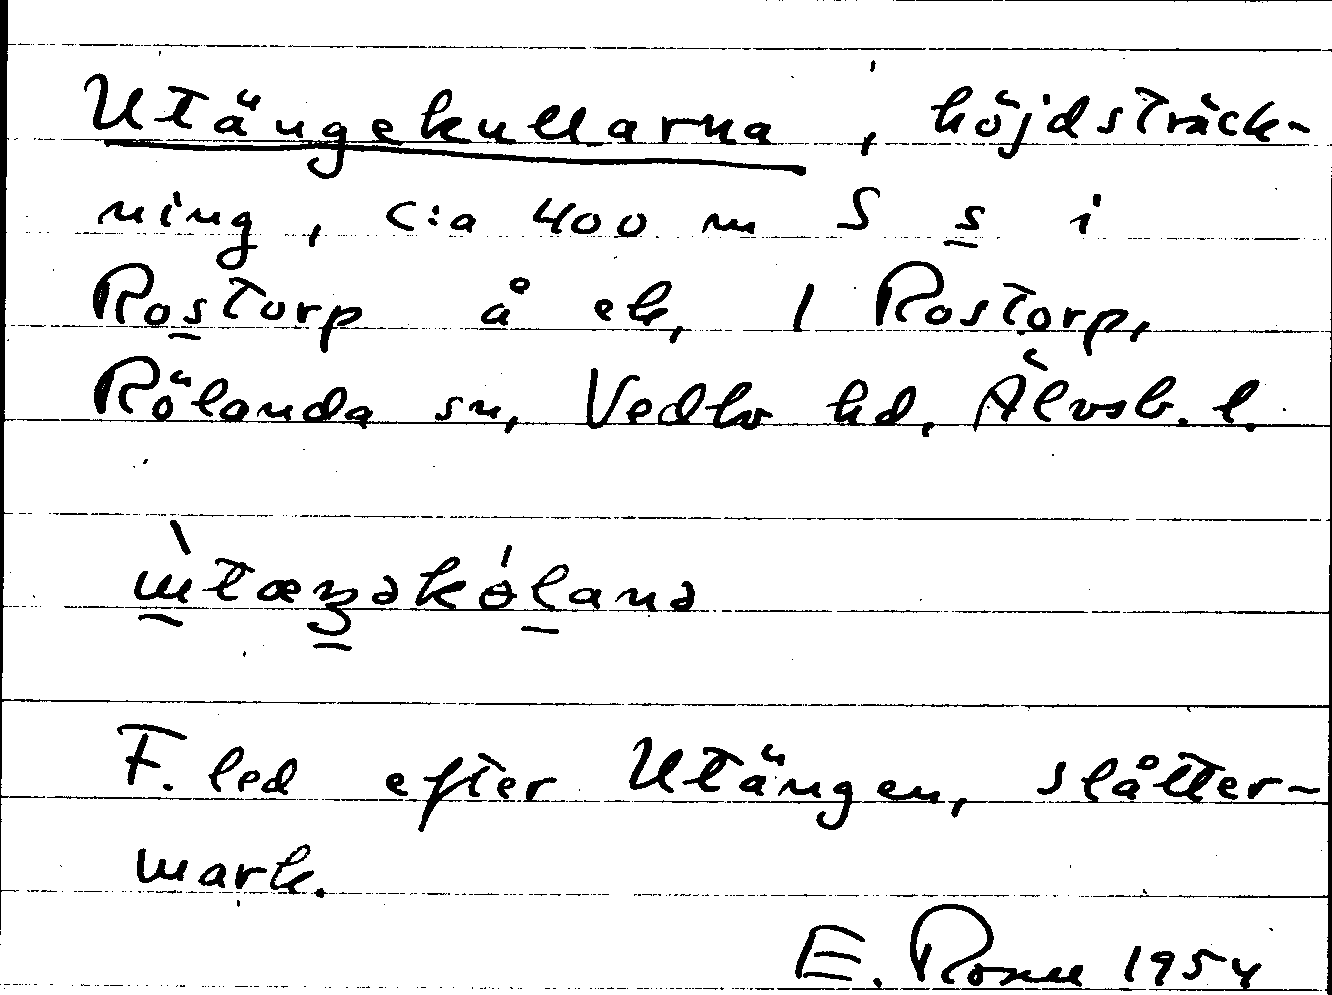 Utängekullarna, höjdsträck-
ning, c:a 400 m S s i
Rostorp å ek, 1 Rostorp,
Rölanda sn, Vedbo hd, Älvsb. l.
F. led efter Utängen, slåtter-
mark.
E. Rosell 1954